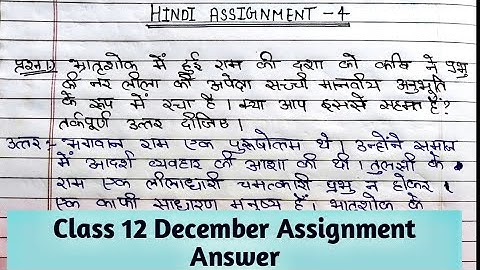 HINDI ASSIGNMENT - 4
प्रश्न 1) भातृशोक में हुई राम की दशा को कवि ने प्रभु
की नर लीला की अपेक्षा सच्ची मानवीय अनुभूति
के रूप में रचा है। क्या आप इससे सहमत हैं?
तर्कपूर्ण उत्तर दीजिए।
उत्तर :- भगवान राम एक पुरुषोत्तम थे। उन्होंने समाज
में आदर्श व्यवहार की आशा की थी। तुलसी के
राम एक लीलाधारी चमत्कारी प्रभु न होकर
एक काफी साधारण मनुष्य हैं। भातृशोक के
Class 12 December Assignment
Answer